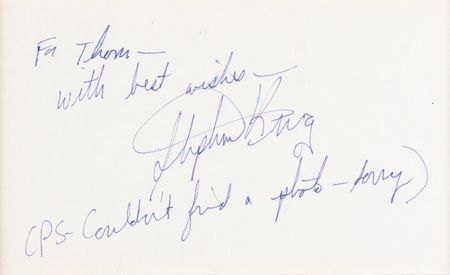 For Thom—
with best wishes—
Stephen King
(PS- Couldn't find a photo—sorry)